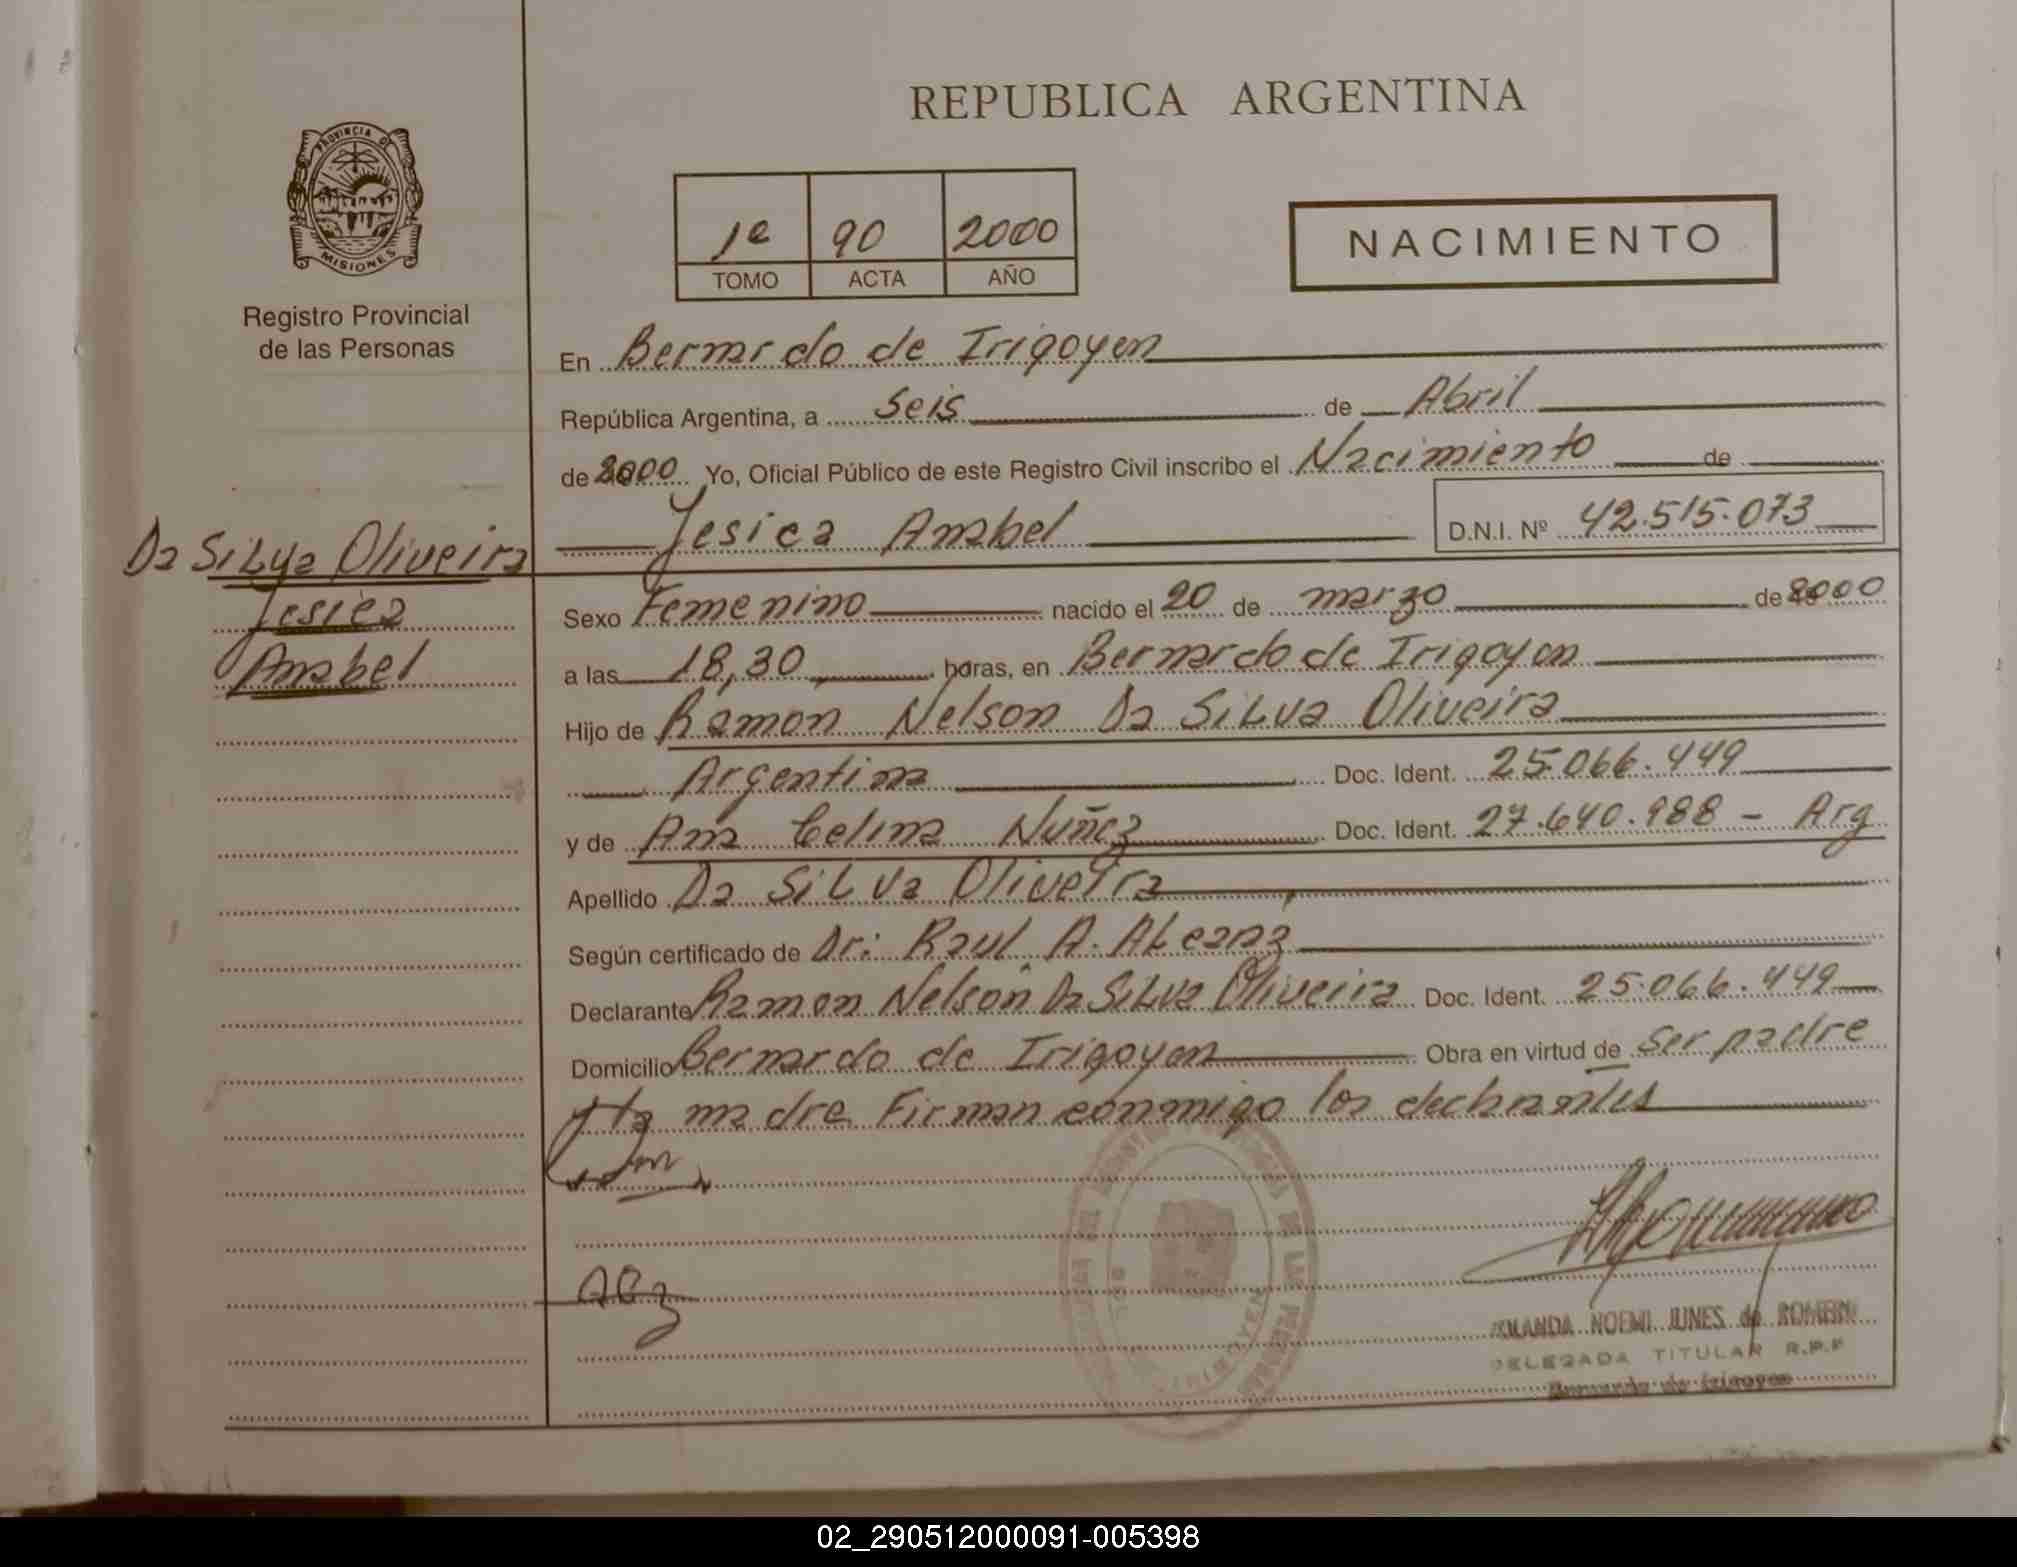 REPUBLICA ARGENTINA
PROVINCIA DE
MISIONES
Registro Provincial
de las Personas
1e 90 2000
TOMO ACTA AÑO
NACIMIENTO
En Bernardo de Irigoyen
República Argentina, a Seis de Abril
de 2000 Yo, Oficial Público de este Registro Civil inscribo el Nacimiento de
Jesica Anabel D.N.I. Nº 42.515.073
Da Silva Oliveira
Jesica
Anabel
Sexo Femenino nacido el 20 de marzo de 2000
a las 18,30 horas, en Bernardo de Irigoyen
Hijo de Ramon Nelson Da Silva Oliveira
Argentina Doc. Ident. 25.066.449
y de Ana Celina Nuñez Doc. Ident. 27.640.988 - Arg
Apellido Da Silva Oliveira
Según certificado de Dr: Raul A. Alcaraz
Declarante Ramon Nelson Da Silva Oliveira Doc. Ident. 25.066.449
Domicilio Bernardo de Irigoyen Obra en virtud de ser padre
y la madre Firman conmigo los declarantes
NOEMI JUNES de ROMERO
DELEGADA TITULAR R.P.P
Bernardo de Irigoyen
02_290512000091-005398